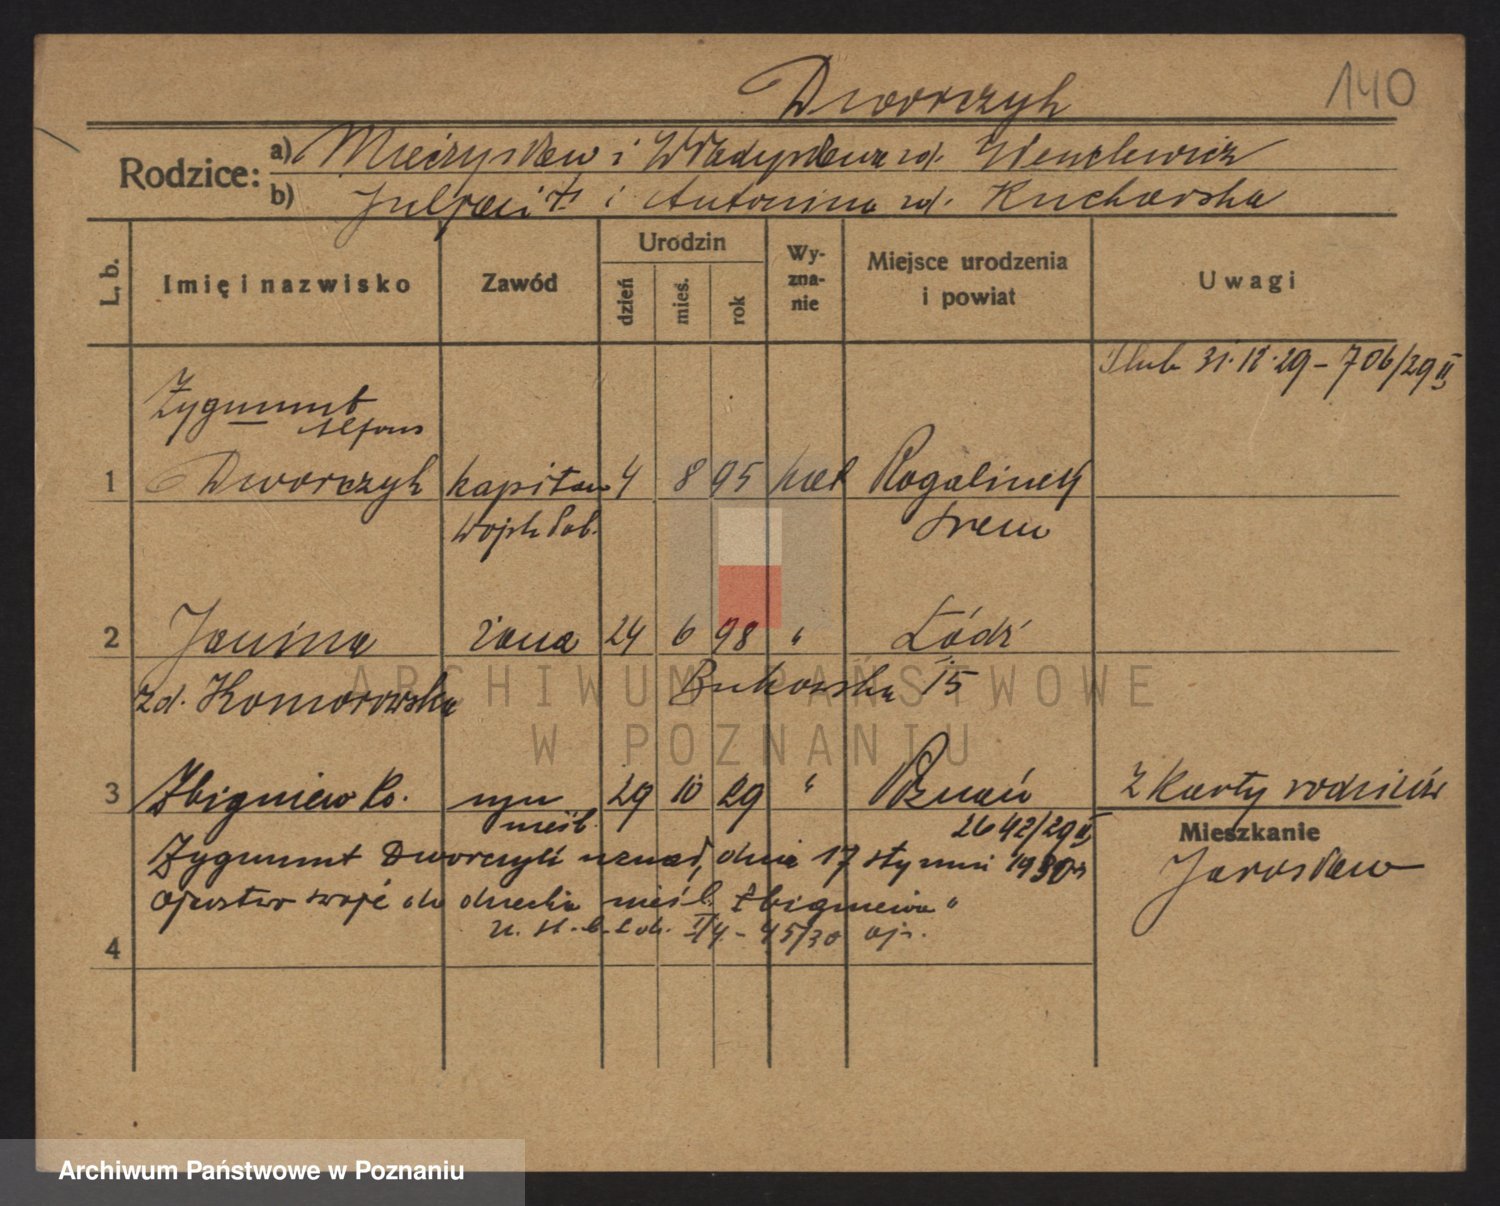 Dworczyk
140
Rodzice:
a) Mieczysław i Władysława zd. Wenclewicz
b) i Antonina zd. Kucharska
L. b.
Imię i nazwisko
Zawód
Urodzin
dzień
mieś.
rok
Wy-
zna-
nie
Miejsce urodzenia
i powiat
Uwagi
Ślub 31.12.29 – 706/29 II
Zygmunt
Alfons
1 Dworczyk kapitan 4 8 95 kat Rogalinek
Wojsk Pol. Śrem
2 Janina żona 24 6 98 " Łódź
zd. Komorowska Bukowska 15
3 Zbigniew syn 29 10 29 " Poznań z karty rodziców
nieśl. 2642/29 II
Mieszkanie
Jarosław
Zygmunt Dworczyk uznał, dnia 17 stycznia 1930 r
ojcostwo swoje do dziecka nieśl. Zbigniewa"
45/30
4
ARCHIWUM PAŃSTWOWE
W POZNANIU
Archiwum Państwowe w Poznaniu